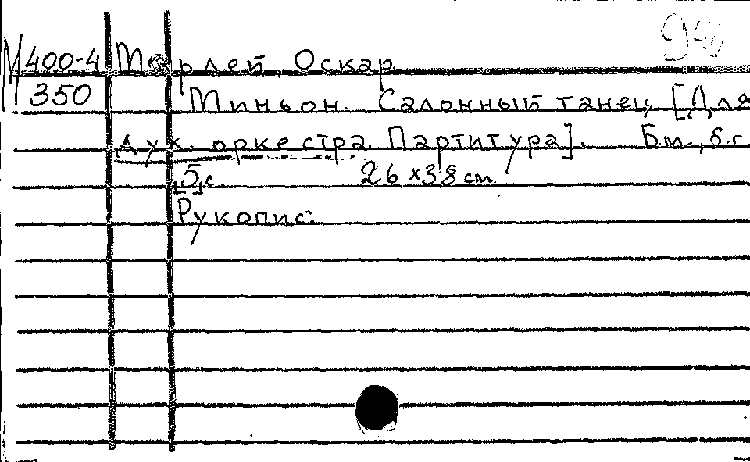 М 400-4 Морлей, Оскар
350 Миньон. Салонный танец. [Для
дух. оркестра. Партитура]. Б.м., б.г.
5 с. 26 х 38 см.
Рукопис.